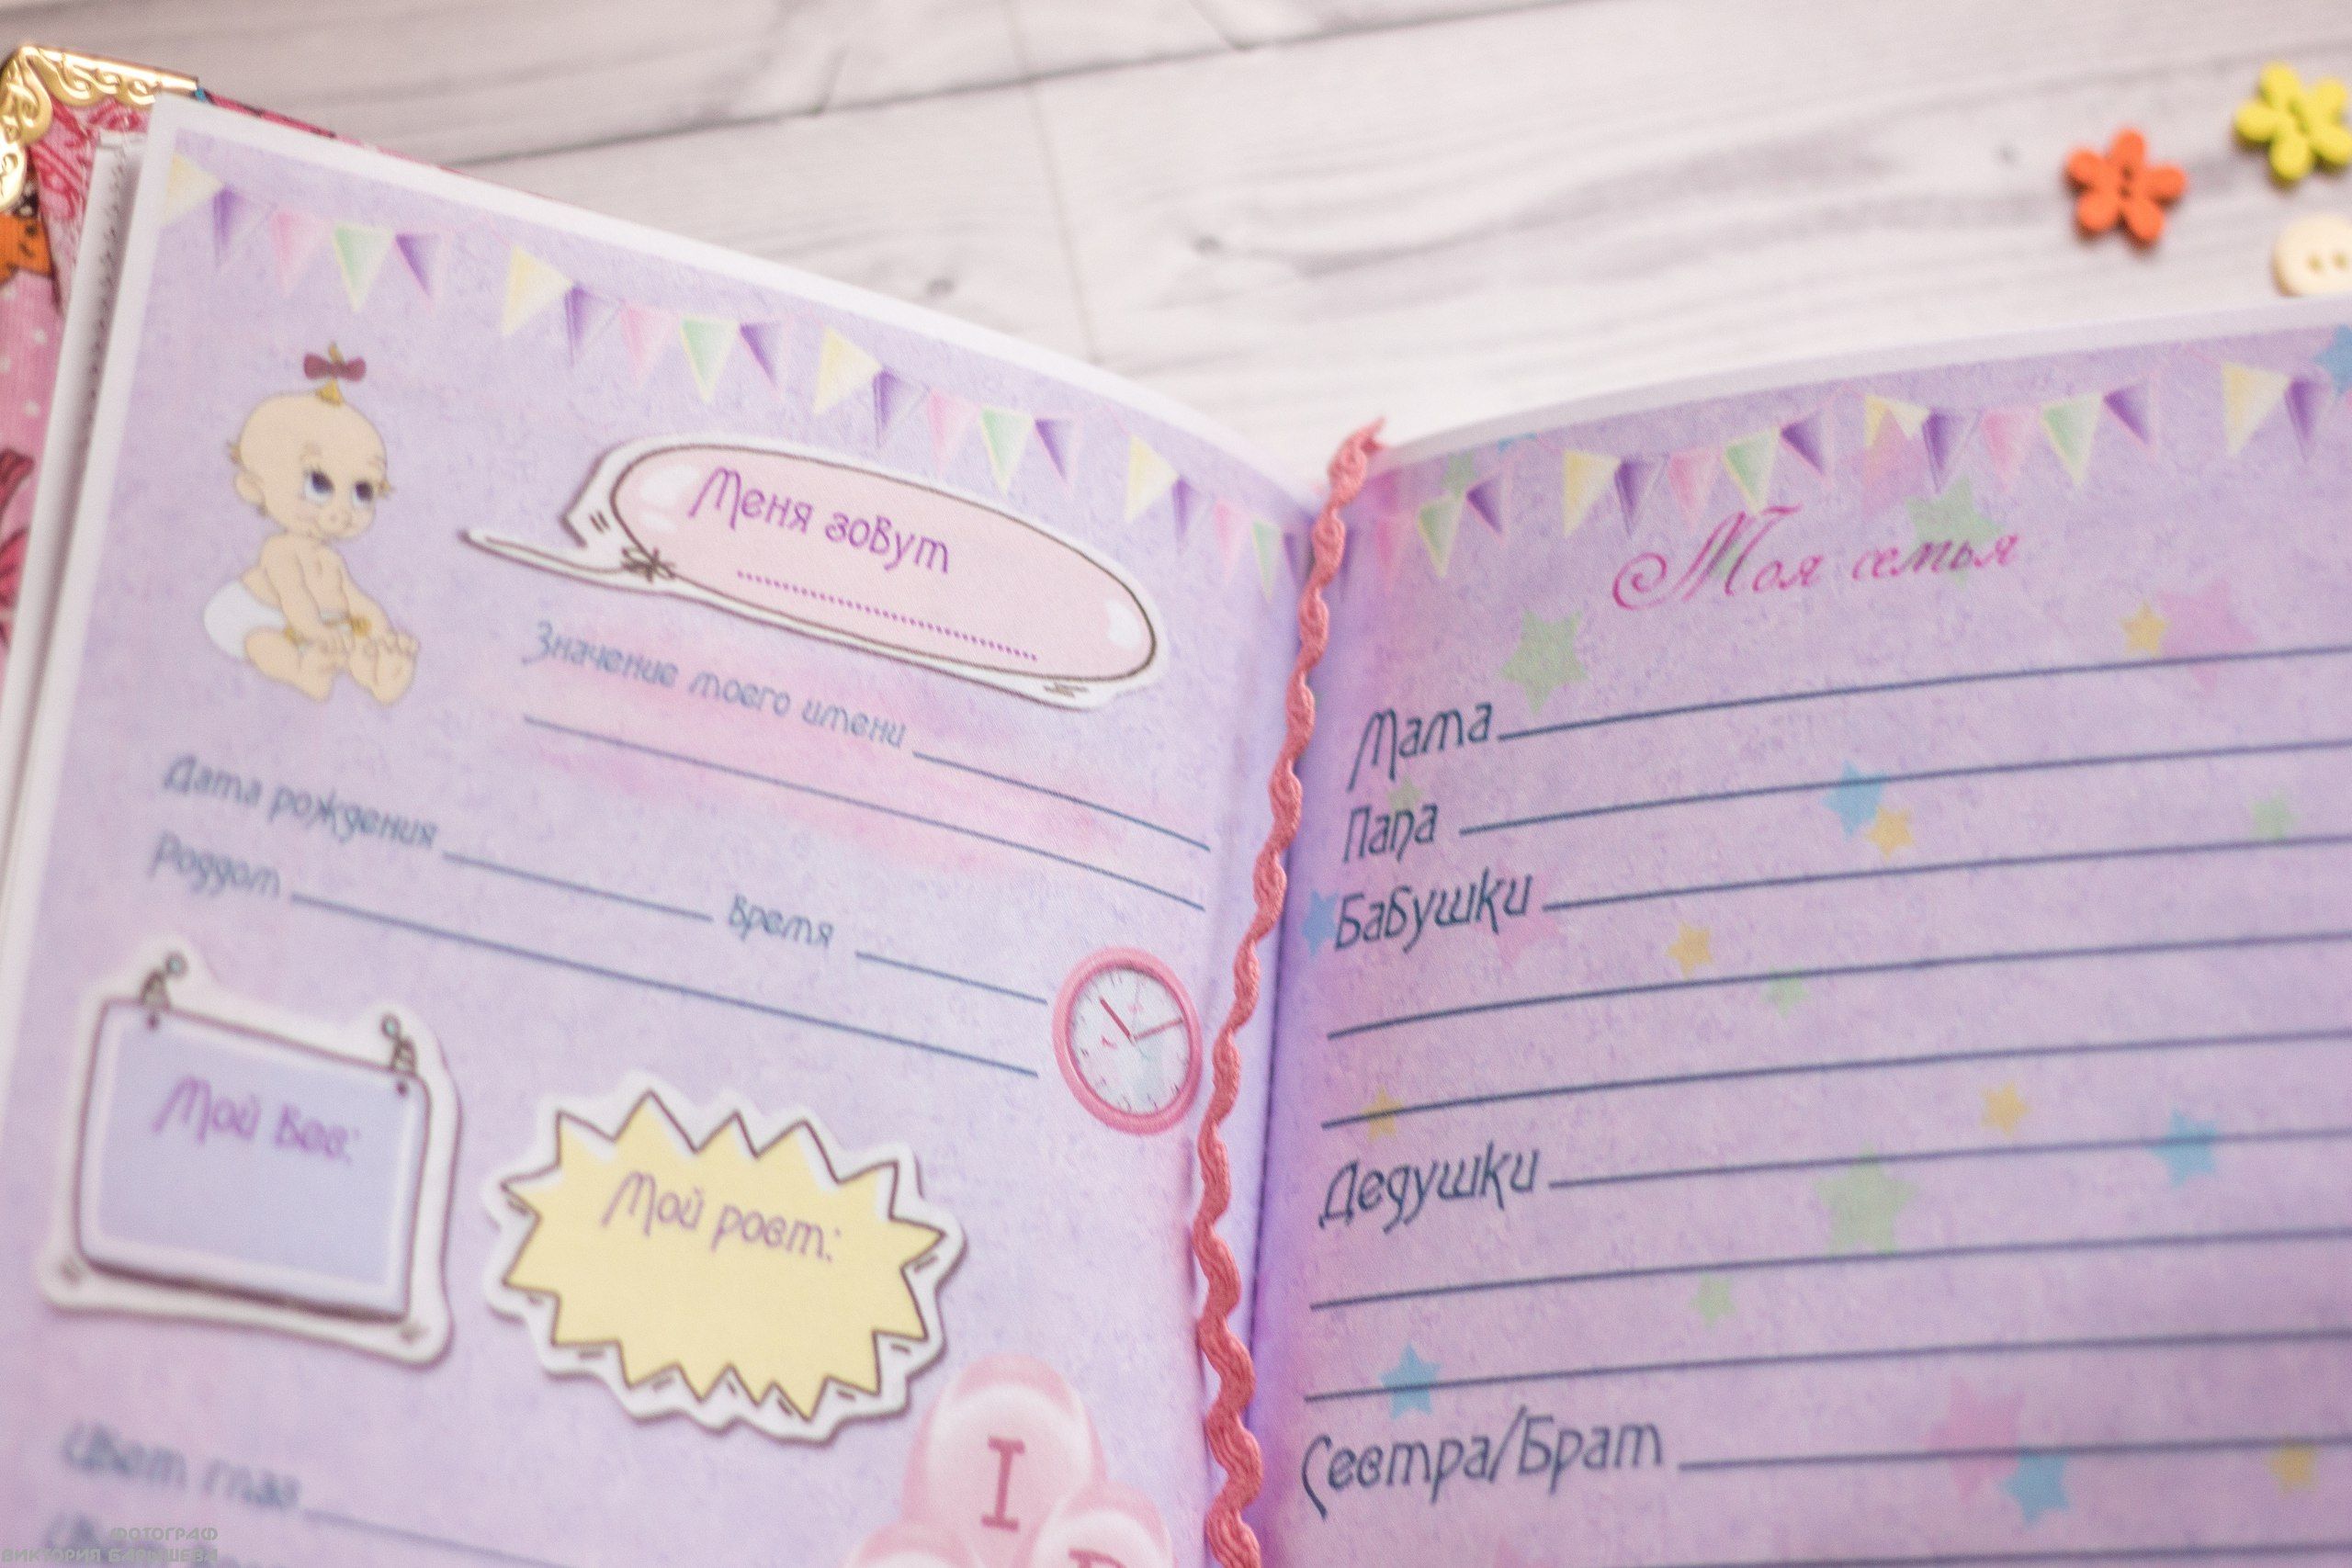 Меня зовут
Значение моего имени
Дата рождения
время
Роддом
Мой вес:
Мой рост:
Цвет глаз
I
Моя семья
Мама
Папа
Бабушки
Дедушки
Сестра/Брат
ФОТОГРАФ
ВИКТОРИЯ